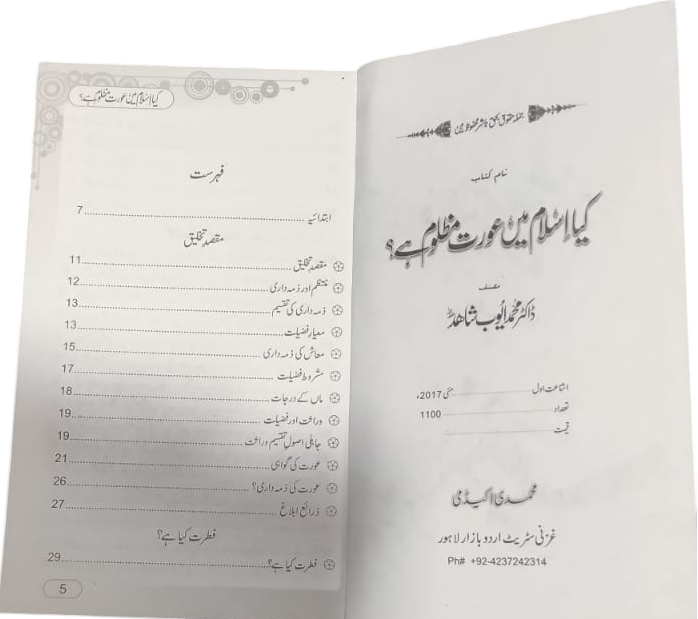 جملہ حقوق بحق ناشر محفوظ ہیں
نام کتاب
کیا اسلام میں عورت مظلوم ہے؟
مصنف
ڈاکٹر محمد ایوب شاھد
اشاعت اول ........ مئی 2017ء
تعداد ........ 1100
قیمت ........
محمدی اکیڈمی
غزنی سٹریٹ اردو بازار لاہور
Ph# +92-4237242314
کیا اسلام میں عورت مظلوم ہے؟
فہرست
ابتدائیہ ........ 7
مقصد تخلیق
مقصد تخلیق ........ 11
منتظم اور ذمہ داری ........ 12
ذمہ داری کی تقسیم ........ 13
معیار فضیلت ........ 13
معاش کی ذمہ داری ........ 15
مشروط فضیلت ........ 17
ماں کے درجات ........ 18
وراثت اور فضیلت ........ 19
جاہلی اصول تقسیم وراثت ........ 19
عورت کی گواہی ........ 21
عورت کی ذمہ داری؟ ........ 26
ذرائع ابلاغ ........ 27
فطرت کیا ہے؟
فطرت کیا ہے؟ ........ 29
5